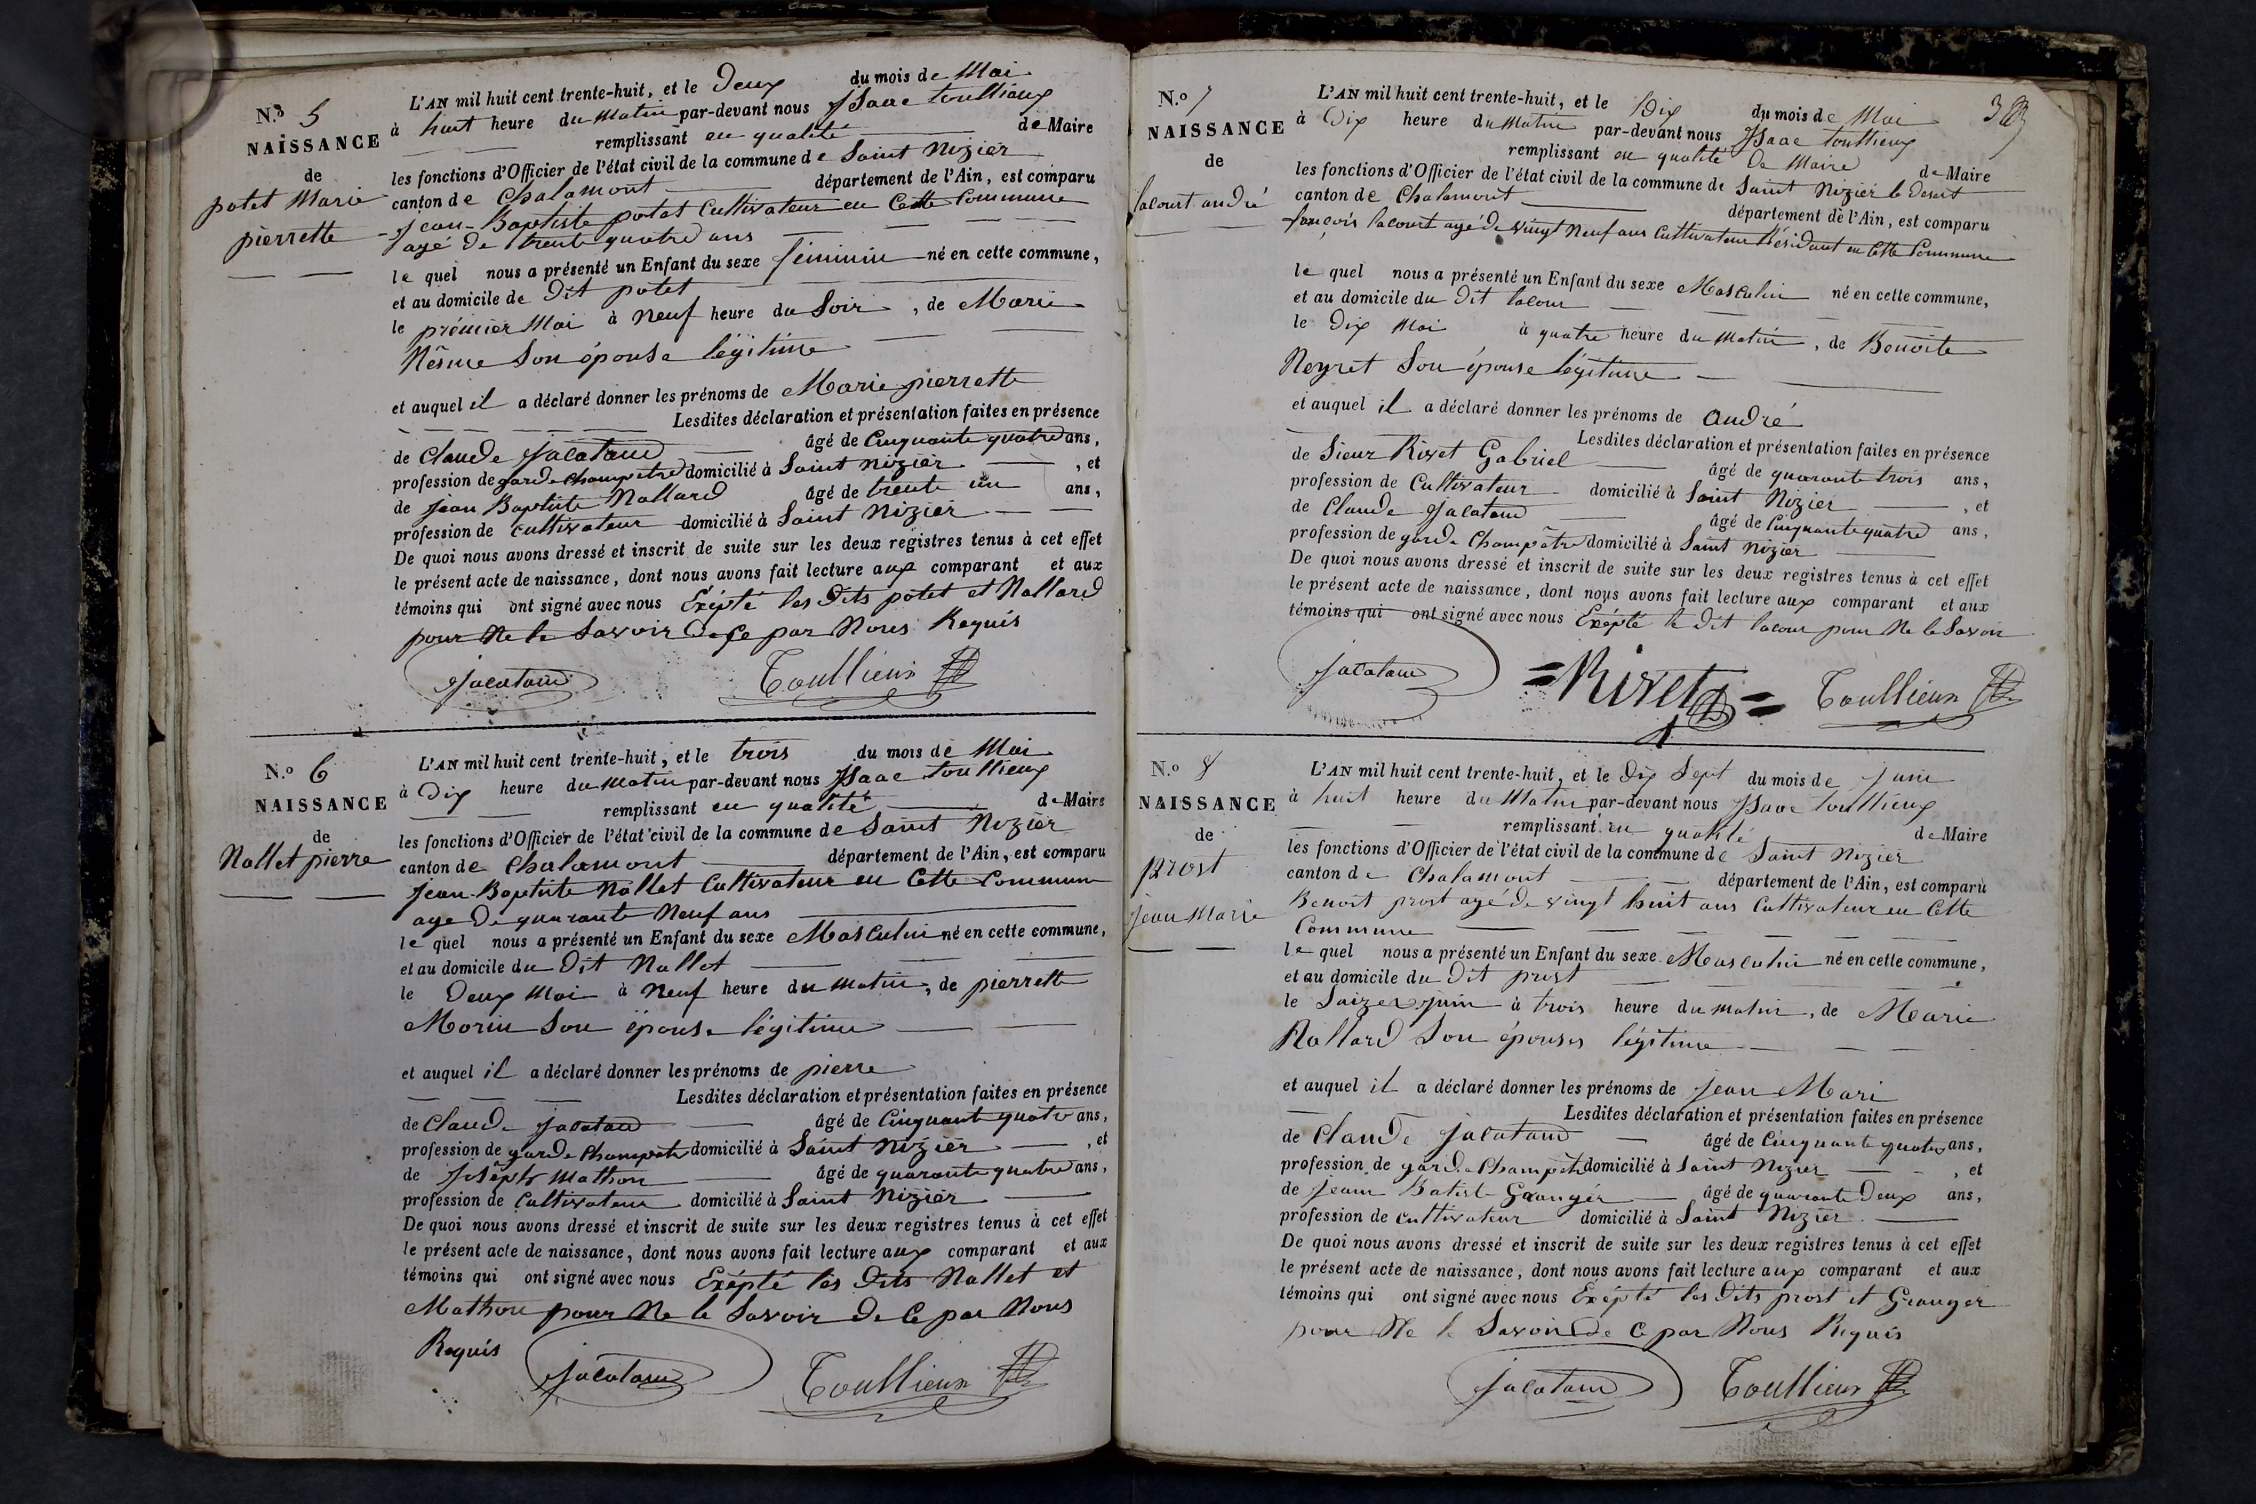 N.º 5
NAISSANCE
de
potet Marie
pierrette
L'AN mil huit cent trente-huit, et le Deux du mois de Mai
à huit heure du Matin par-devant nous Isaac toullieux
remplissant en qualité de Maire
les fonctions d'Officier de l'état civil de la commune de Saint Nizier
canton de Chalamont département de l'Ain, est comparu
Jean-Baptiste potet Cultivateur en Cette Commune
agé de trente quatre ans
le quel nous a présenté un Enfant du sexe féminin né en cette commune,
et au domicile de Dit potet
le prémier Mai à Neuf heure du Soir, de Marie
Nésme Son épouse légitime
et auquel il a déclaré donner les prénoms de Marie pierrette
Lesdites déclaration et présentation faites en présence
de Claude Jacataud âgé de Cinquante quatre ans,
profession de garde Champetre domicilié à Saint Nizier, et
de Jean Baptiste Nallard âgé de trente un ans,
profession de cultivateur domicilié à Saint Nizier
De quoi nous avons dressé et inscrit de suite sur les deux registres tenus à cet effet
le présent acte de naissance, dont nous avons fait lecture aux comparant et aux
témoins qui ont signé avec nous Exépté les Dits potet et Nallard
pour Ne le Savoir de Ce par Nous Requis
Jacataud Toullieux
N.º 6
NAISSANCE
de
Nallet pierre
L'AN mil huit cent trente-huit, et le trois du mois de Mai
à Dix heure du Matin par-devant nous Isaac toullieux
remplissant en qualité de Maire
les fonctions d'Officier de l'état civil de la commune de Saint Nizier
canton de Chalamont département de l'Ain, est comparu
Jean-Baptiste Nallet Cultivateur en Cette Commun
agé De quarante Neuf ans
le quel nous a présenté un Enfant du sexe Masculin né en cette commune,
et au domicile du Dit Nallet
le Deux Mai à Neuf heure du matin, de pierrette
Morin Son épouse légitime
et auquel il a déclaré donner les prénoms de pierre
Lesdites déclaration et présentation faites en présence
de Claude Jacataud âgé de Cinquante quatre ans,
profession de garde Champetre domicilié à Saint Nizier, et
de Joséph Mathon âgé de quarante quatre ans,
profession de Cultivateur domicilié à Saint Nizier
De quoi nous avons dressé et inscrit de suite sur les deux registres tenus à cet effet
le présent acte de naissance, dont nous avons fait lecture aux comparant et aux
témoins qui ont signé avec nous Exépté les Dits Nallet et
Mathon pour Ne le Savoir de Ce par Nous
Requis
Jacataud Toullieux
N.º 7
NAISSANCE
de
lacourt andré
L'AN mil huit cent trente-huit, et le Dix du mois de Mai
à Dix heure du Matin par-devant nous Isaac toullieux
remplissant en qualité De Maire de Maire
les fonctions d'Officier de l'état civil de la commune de Saint Nizier le Desert
canton de Chalamont département de l'Ain, est comparu
françois lacourt agé de vingt Neuf ans Cultivateur Résidant en Cette Commune
le quel nous a présenté un Enfant du sexe Masculin né en cette commune,
et au domicile du Dit lacour
le Dix Mai à quatre heure du Matin, de Benoite
Neyret Son épouse légitime
et auquel il a déclaré donner les prénoms de andré
Lesdites déclaration et présentation faites en présence
de Sieur Rivet Gabriel âgé de quarante trois ans,
profession de Cultivateur domicilié à Saint Nizier, et
de Claude Jacataud âgé de Cinquante quatre ans,
profession de garde Champêtre domicilié à Saint Nizier
De quoi nous avons dressé et inscrit de suite sur les deux registres tenus à cet effet
le présent acte de naissance, dont nous avons fait lecture aux comparant et aux
témoins qui ont signé avec nous Exépté le Dit lacour pour Ne le Savoir
Jacataud Rivet Toullieux
N.º 8
NAISSANCE
de
prost
jean Marie
L'AN mil huit cent trente-huit, et le Dix Sept du mois de Juin
à huit heure du Matin par-devant nous Isaac toullieux
remplissant en qualité de Maire
les fonctions d'Officier de l'état civil de la commune de Saint Nizier
canton de Chalamont département de l'Ain, est comparu
Benoit prost agé de vingt huit ans Cultivateur en Cette
Commune
le quel nous a présenté un Enfant du sexe Masculin né en cette commune,
et au domicile du Dit prost
le Saize juin à trois heure du matin, de Marie
Nallard Son épouse légitime
et auquel il a déclaré donner les prénoms de Jean Mari
Lesdites déclaration et présentation faites en présence
de Claude Jacataud âgé de Cinquante quatre ans,
profession de garde Champêtre domicilié à Saint Nizier, et
de Jean Batiste Granger âgé de quarante Deux ans,
profession de cultivateur domicilié à Saint Nizier
De quoi nous avons dressé et inscrit de suite sur les deux registres tenus à cet effet
le présent acte de naissance, dont nous avons fait lecture aux comparant et aux
témoins qui ont signé avec nous Exépté les Dits prost et Granger
pour Ne le Savoir de Ce par Nous Requis
Jacataud Toullieux